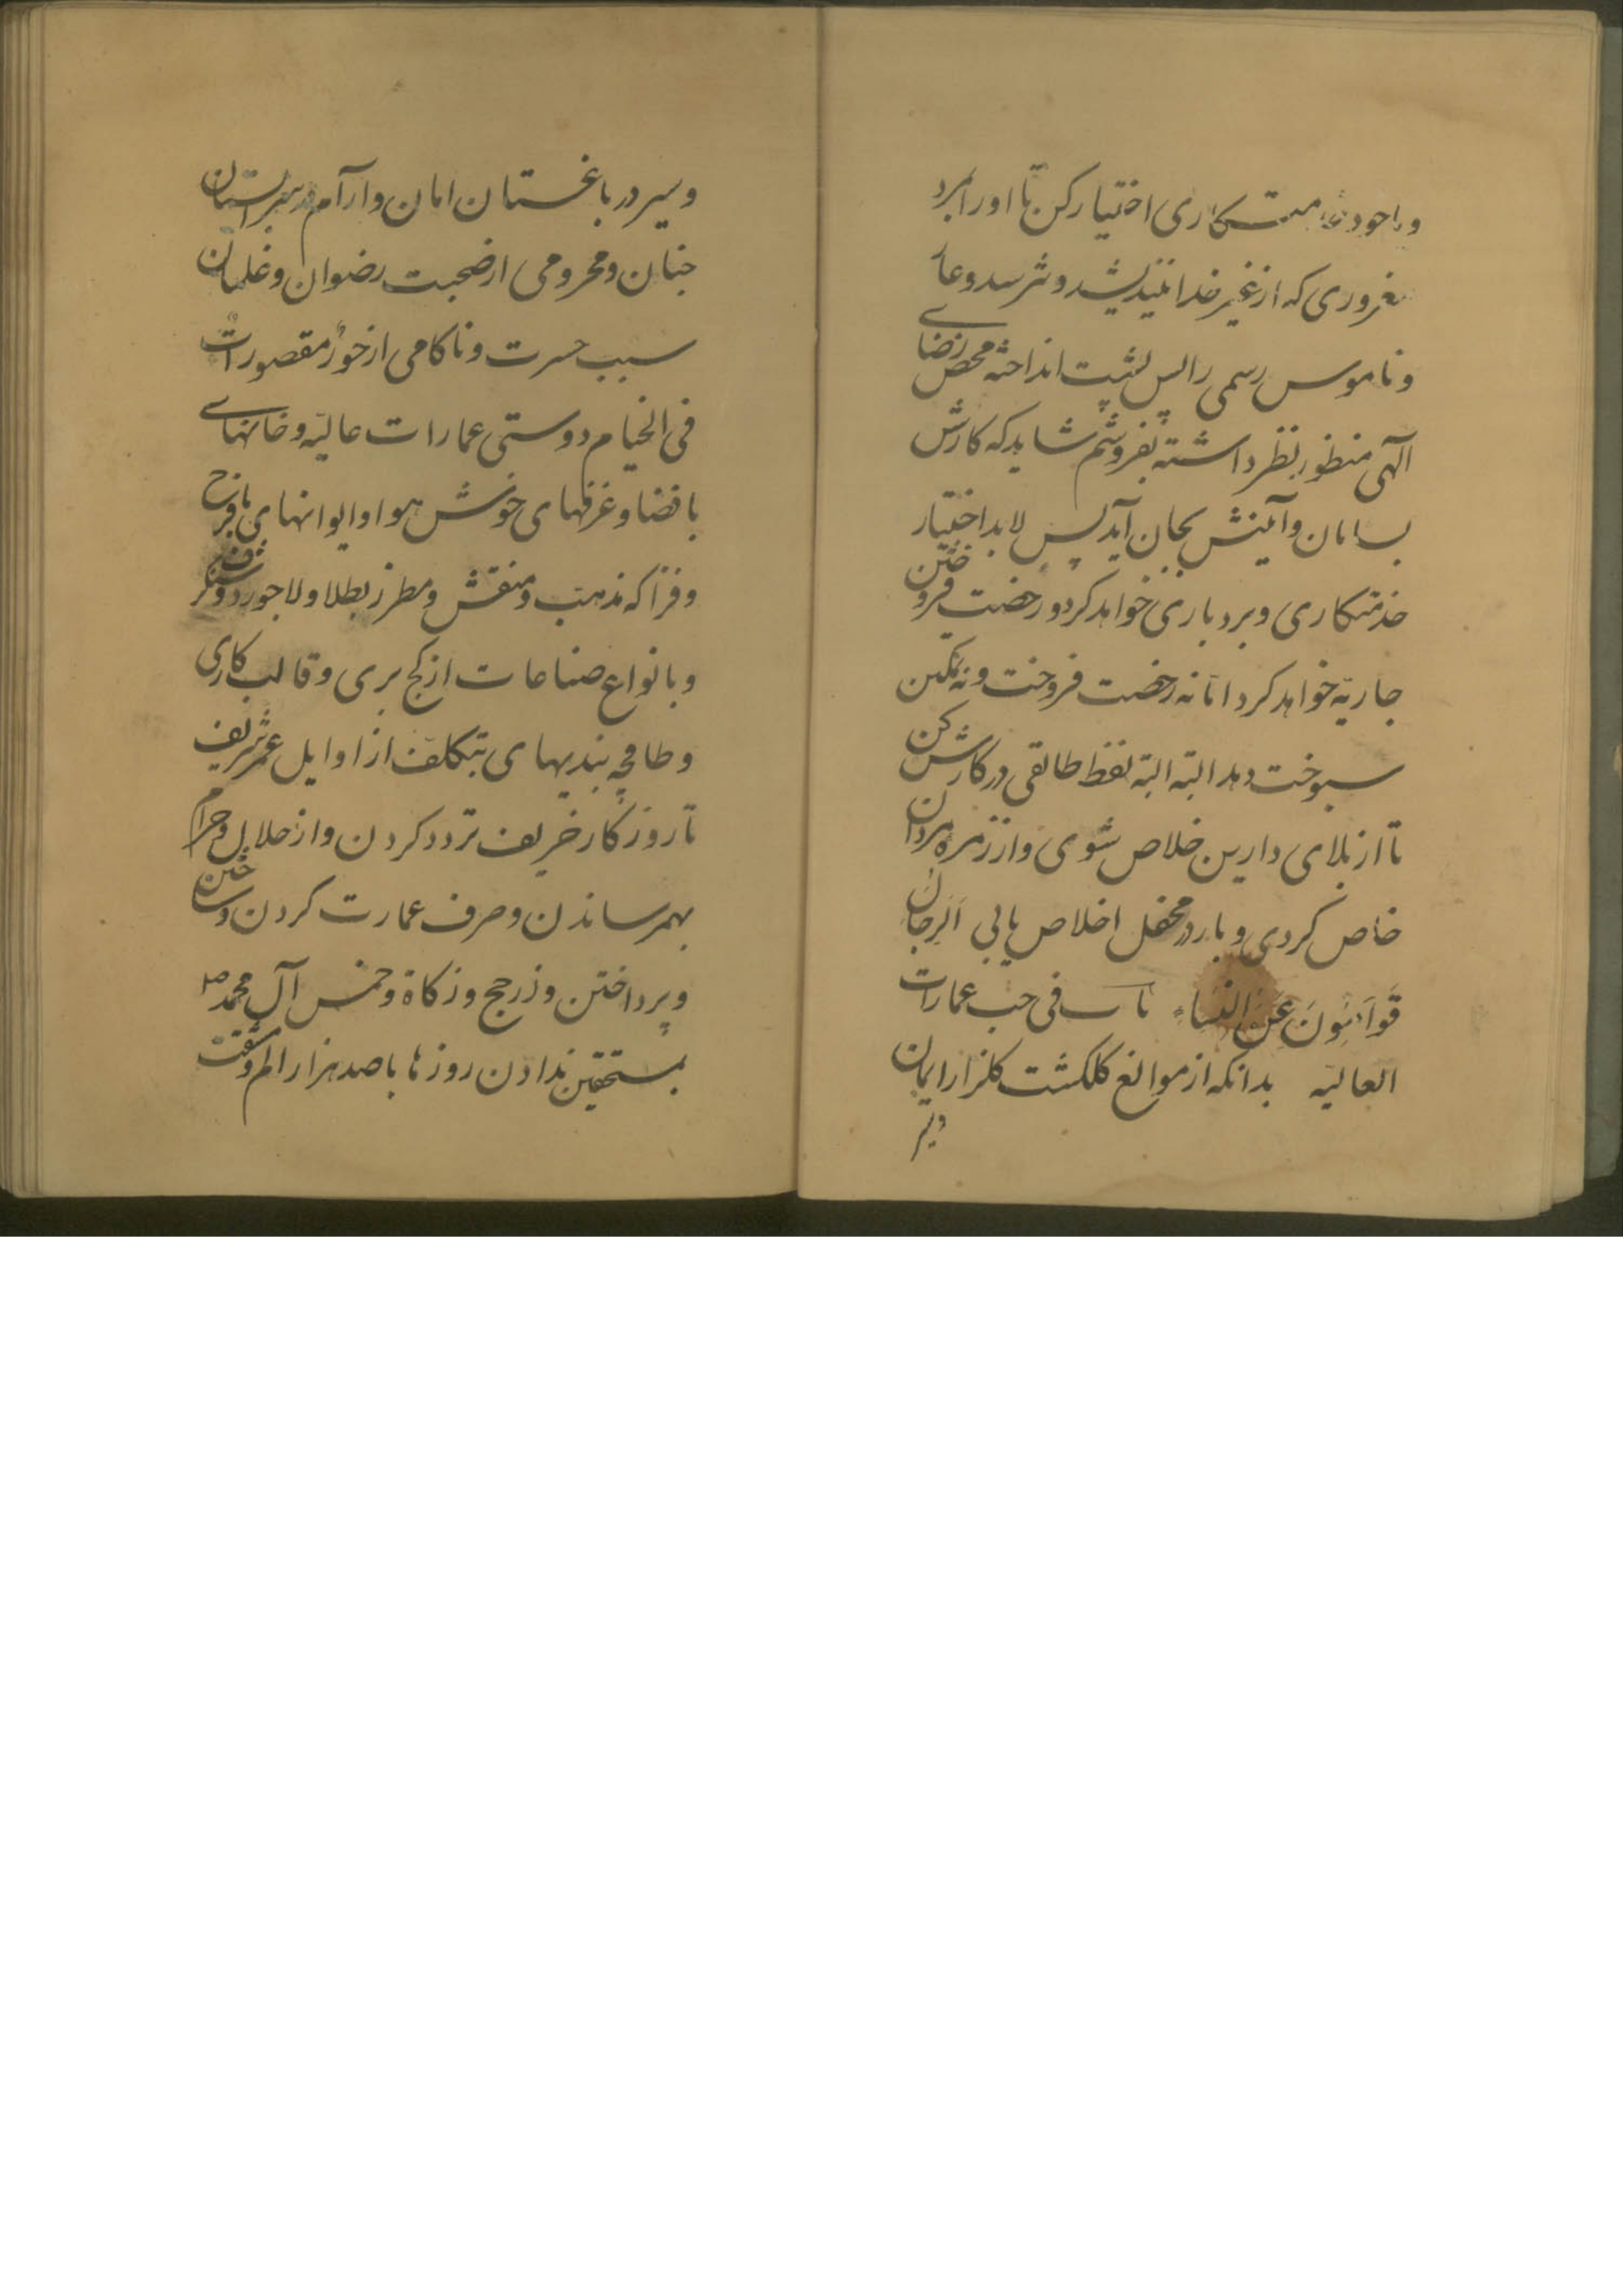 و باخود خدمتکاری اختیار کن تا او را بمرد
مغروری که از غیر خدا نیندیشد و نترسد و عار
و ناموس رسمی را پس پشت انداخته محض رضای
آلهی منظور نظر داشته بفروشم شاید که کارش
بسامان و آئینش بجان آید پس لابد اختیار
خدمتکاری و بردباری خواهد کرد و رخصت فروختن
جاریه خواهد کرد اما نه رخصت فروخت و نه تمکین
سوخت دهد البته البته لفظ طالقی در کارش کن
تا از بلای دارین خلاص شوی و از زمره مردان
خاص گردی و بار در محفل اخلاص یابی اَلرِجالُ
قَوّامُونَ عَلَی النِّساءِ باب فی حب عمارات
العالیه بدانکه از موانع کلکشت کلزار ایمان
وسیر
وسیر در باغستان امان و آرام در سرابستان
جنان و محرومی از صحبت رضوان و غلمان
سبب حسرت و ناکامی از حُورٌ مقصوراتٌ
فی الخیام دوستی عمارات عالیه و خانهای
با فضا و غرفهای خوش هوا و ایوانهای با فرح
و فزا که مذهب و منقش و مطرز بطلا و لاجورد و شنکرف
و بانواع صناعات از کج بری و قالب کاری
و طاقچه بندیهای بتکلف از اوایل عمر شریف
تا روزکار خریف تردد کردن و از حلال و حرام
بهمرساندن و صرف عمارت کردن و ساختن
و پرداختن و زر حج و زکاة و خمس آل محمد ص
بمستحقین ندادن روزها با صد هزار الم و مشقت